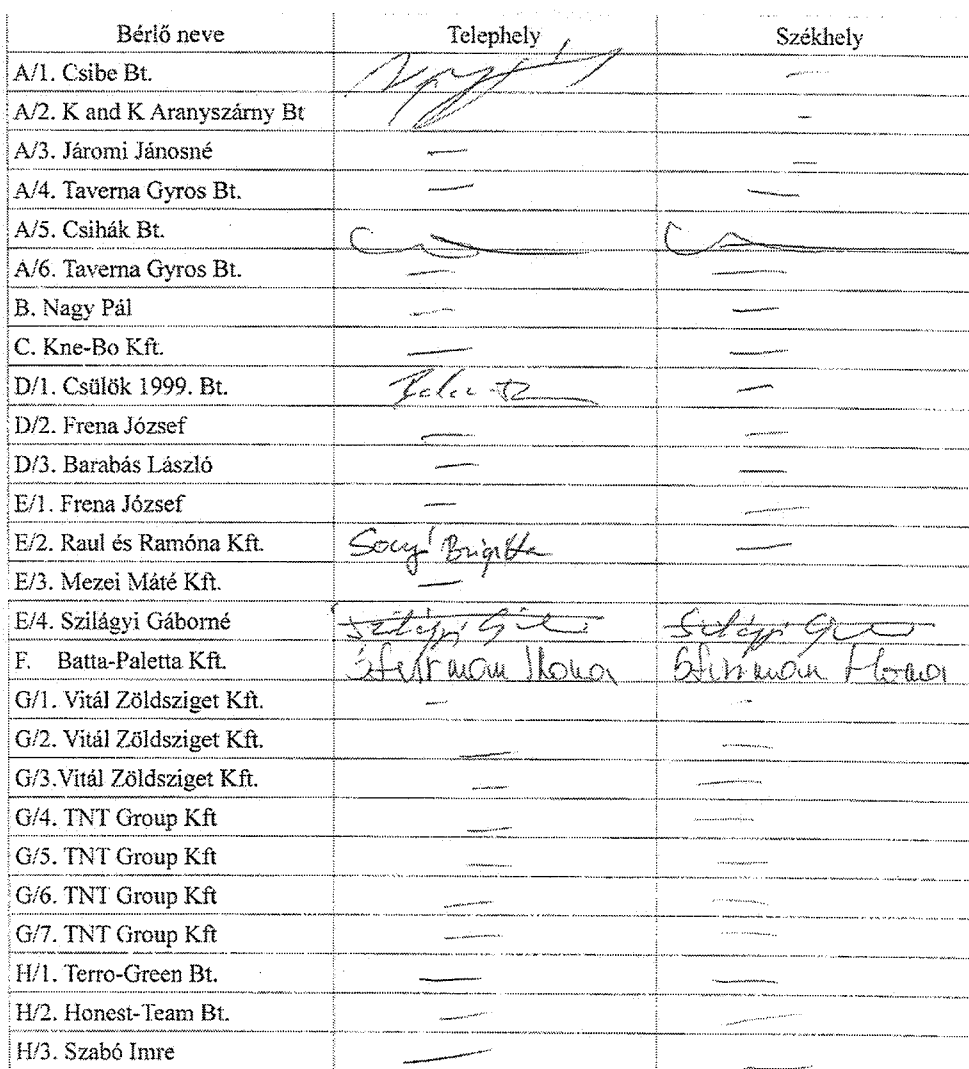 Bérlő neve Telephely Székhely
A/1. Csibe Bt. —
A/2. K and K Aranyszárny Bt —
A/3. Járomi Jánosné — —
A/4. Taverna Gyros Bt. — —
A/5. Csihák Bt.
A/6. Taverna Gyros Bt. — —
B. Nagy Pál — —
C. Kne-Bo Kft. — —
D/1. Csülök 1999. Bt. —
D/2. Frena József — —
D/3. Barabás László — —
E/1. Frena József — —
E/2. Raul és Ramóna Kft. Brigitta —
E/3. Mezei Máté Kft. —
E/4. Szilágyi Gáborné Szilágyi Szilágyi
F. Batta-Paletta Kft. Ilona Ilona
G/1. Vitál Zöldsziget Kft. — —
G/2. Vitál Zöldsziget Kft. — —
G/3.Vitál Zöldsziget Kft. — —
G/4. TNT Group Kft — —
G/5. TNT Group Kft — —
G/6. TNT Group Kft — —
G/7. TNT Group Kft — —
H/1. Terro-Green Bt. — —
H/2. Honest-Team Bt. — —
H/3. Szabó Imre — —